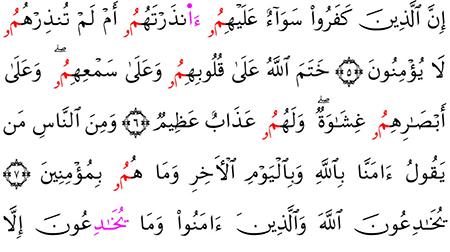 إِنَّ ٱلَّذِينَ كَفَرُوا۟ سَوَآءٌ عَلَيْهِمُۥ ءَا۬نذَرْتَهُمُۥ أَمْ لَمْ تُنذِرْهُمُۥ
لَا يُؤْمِنُونَ ۝٥ خَتَمَ ٱللَّهُ عَلَىٰ قُلُوبِهِمُۥ وَعَلَىٰ سَمْعِهِمُۥۖ وَعَلَىٰ
أَبْصَـٰرِهِمُۥ غِشَـٰوَةٌۖ وَلَهُمُۥ عَذَابٌ عَظِيمٌ ۝٦ وَمِنَ ٱلنَّاسِ مَن
يَقُولُ ءَامَنَّا بِٱللَّهِ وَبِٱلْيَوْمِ ٱلْأَخِرِ وَمَا هُمُۥ بِمُؤْمِنِينَ ۝٧
يُخَـٰدِعُونَ ٱللَّهَ وَٱلَّذِينَ ءَامَنُوا۟ وَمَا يُخَـٰدِعُونَ إِلَّا